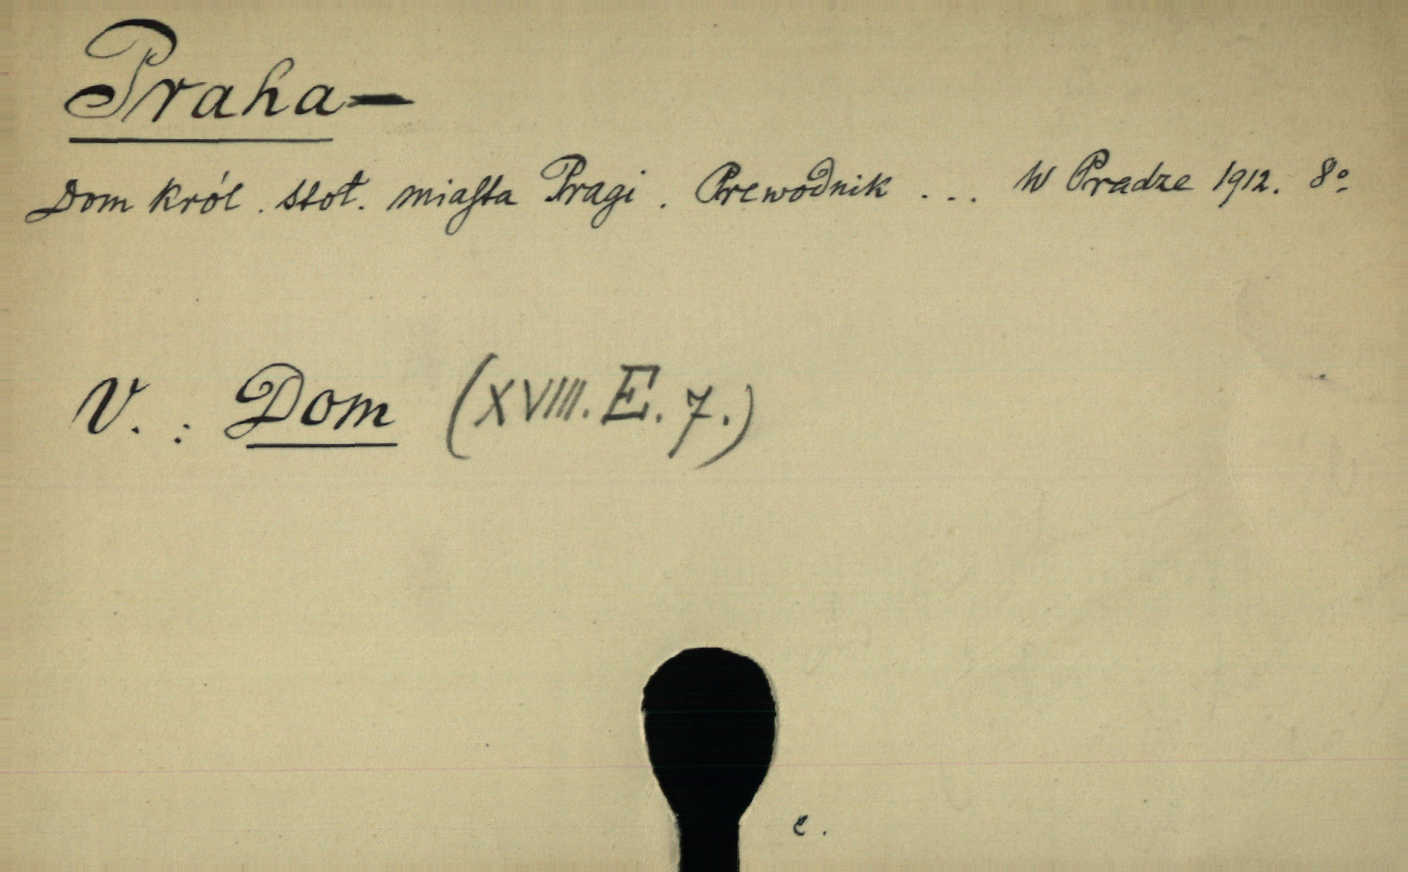 Praha—
Dom król. stoł. miasta Pragi. Prewodnik ... W Pradze 1912. 8º.
V.: Dom (XVIII. E. 7.)
c.